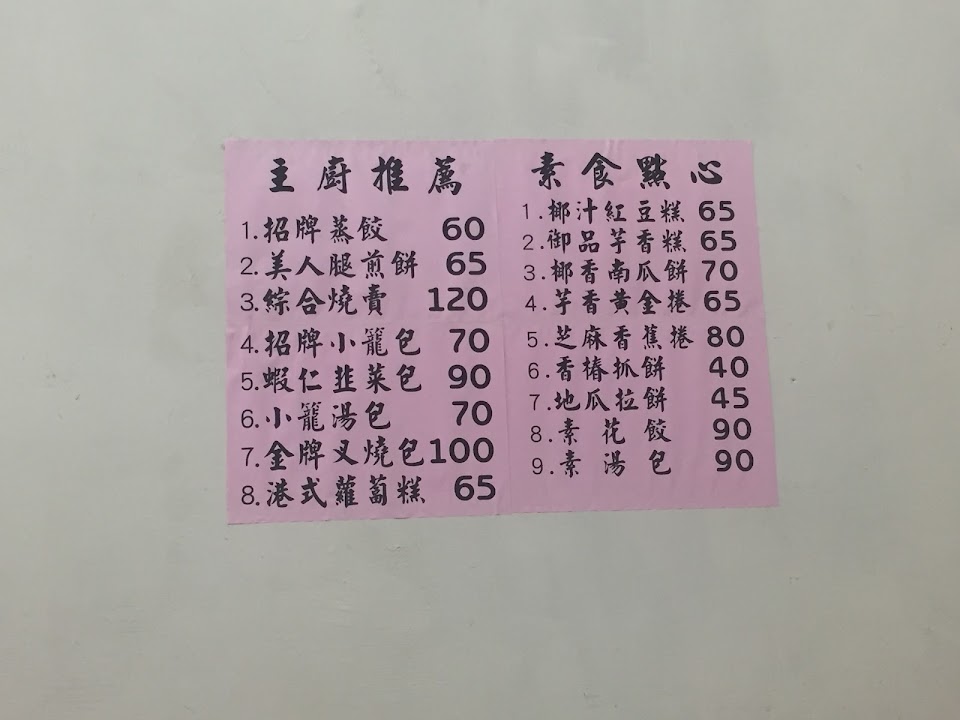 主廚推薦
1.招牌蒸餃 60
2.美人腿煎餅 65
3.綜合燒賣 120
4.招牌小籠包 70
5.蝦仁韭菜包 90
6.小籠湯包 70
7.金牌叉燒包 100
8.港式蘿蔔糕 65
素食點心
1.椰汁紅豆糕 65
2.御品芋香糕 65
3.椰香南瓜餅 70
4.芋香黃金捲 65
5.芝麻香蕉捲 80
6.香椿抓餅 40
7.地瓜拉餅 45
8.素花餃 90
9.素湯包 90